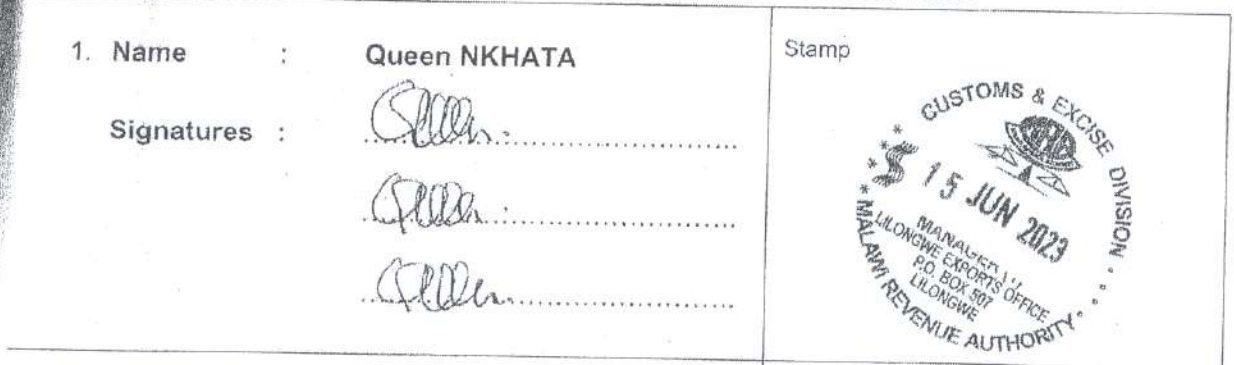 1. Name : Queen NKHATA
Signatures :
Stamp
CUSTOMS & EXCISE DIVISION
MRA
15 JUN 2023
MANAGER
LILONGWE EXPORTS OFFICE
P.O. BOX 507
LILONGWE
MALAWI REVENUE AUTHORITY